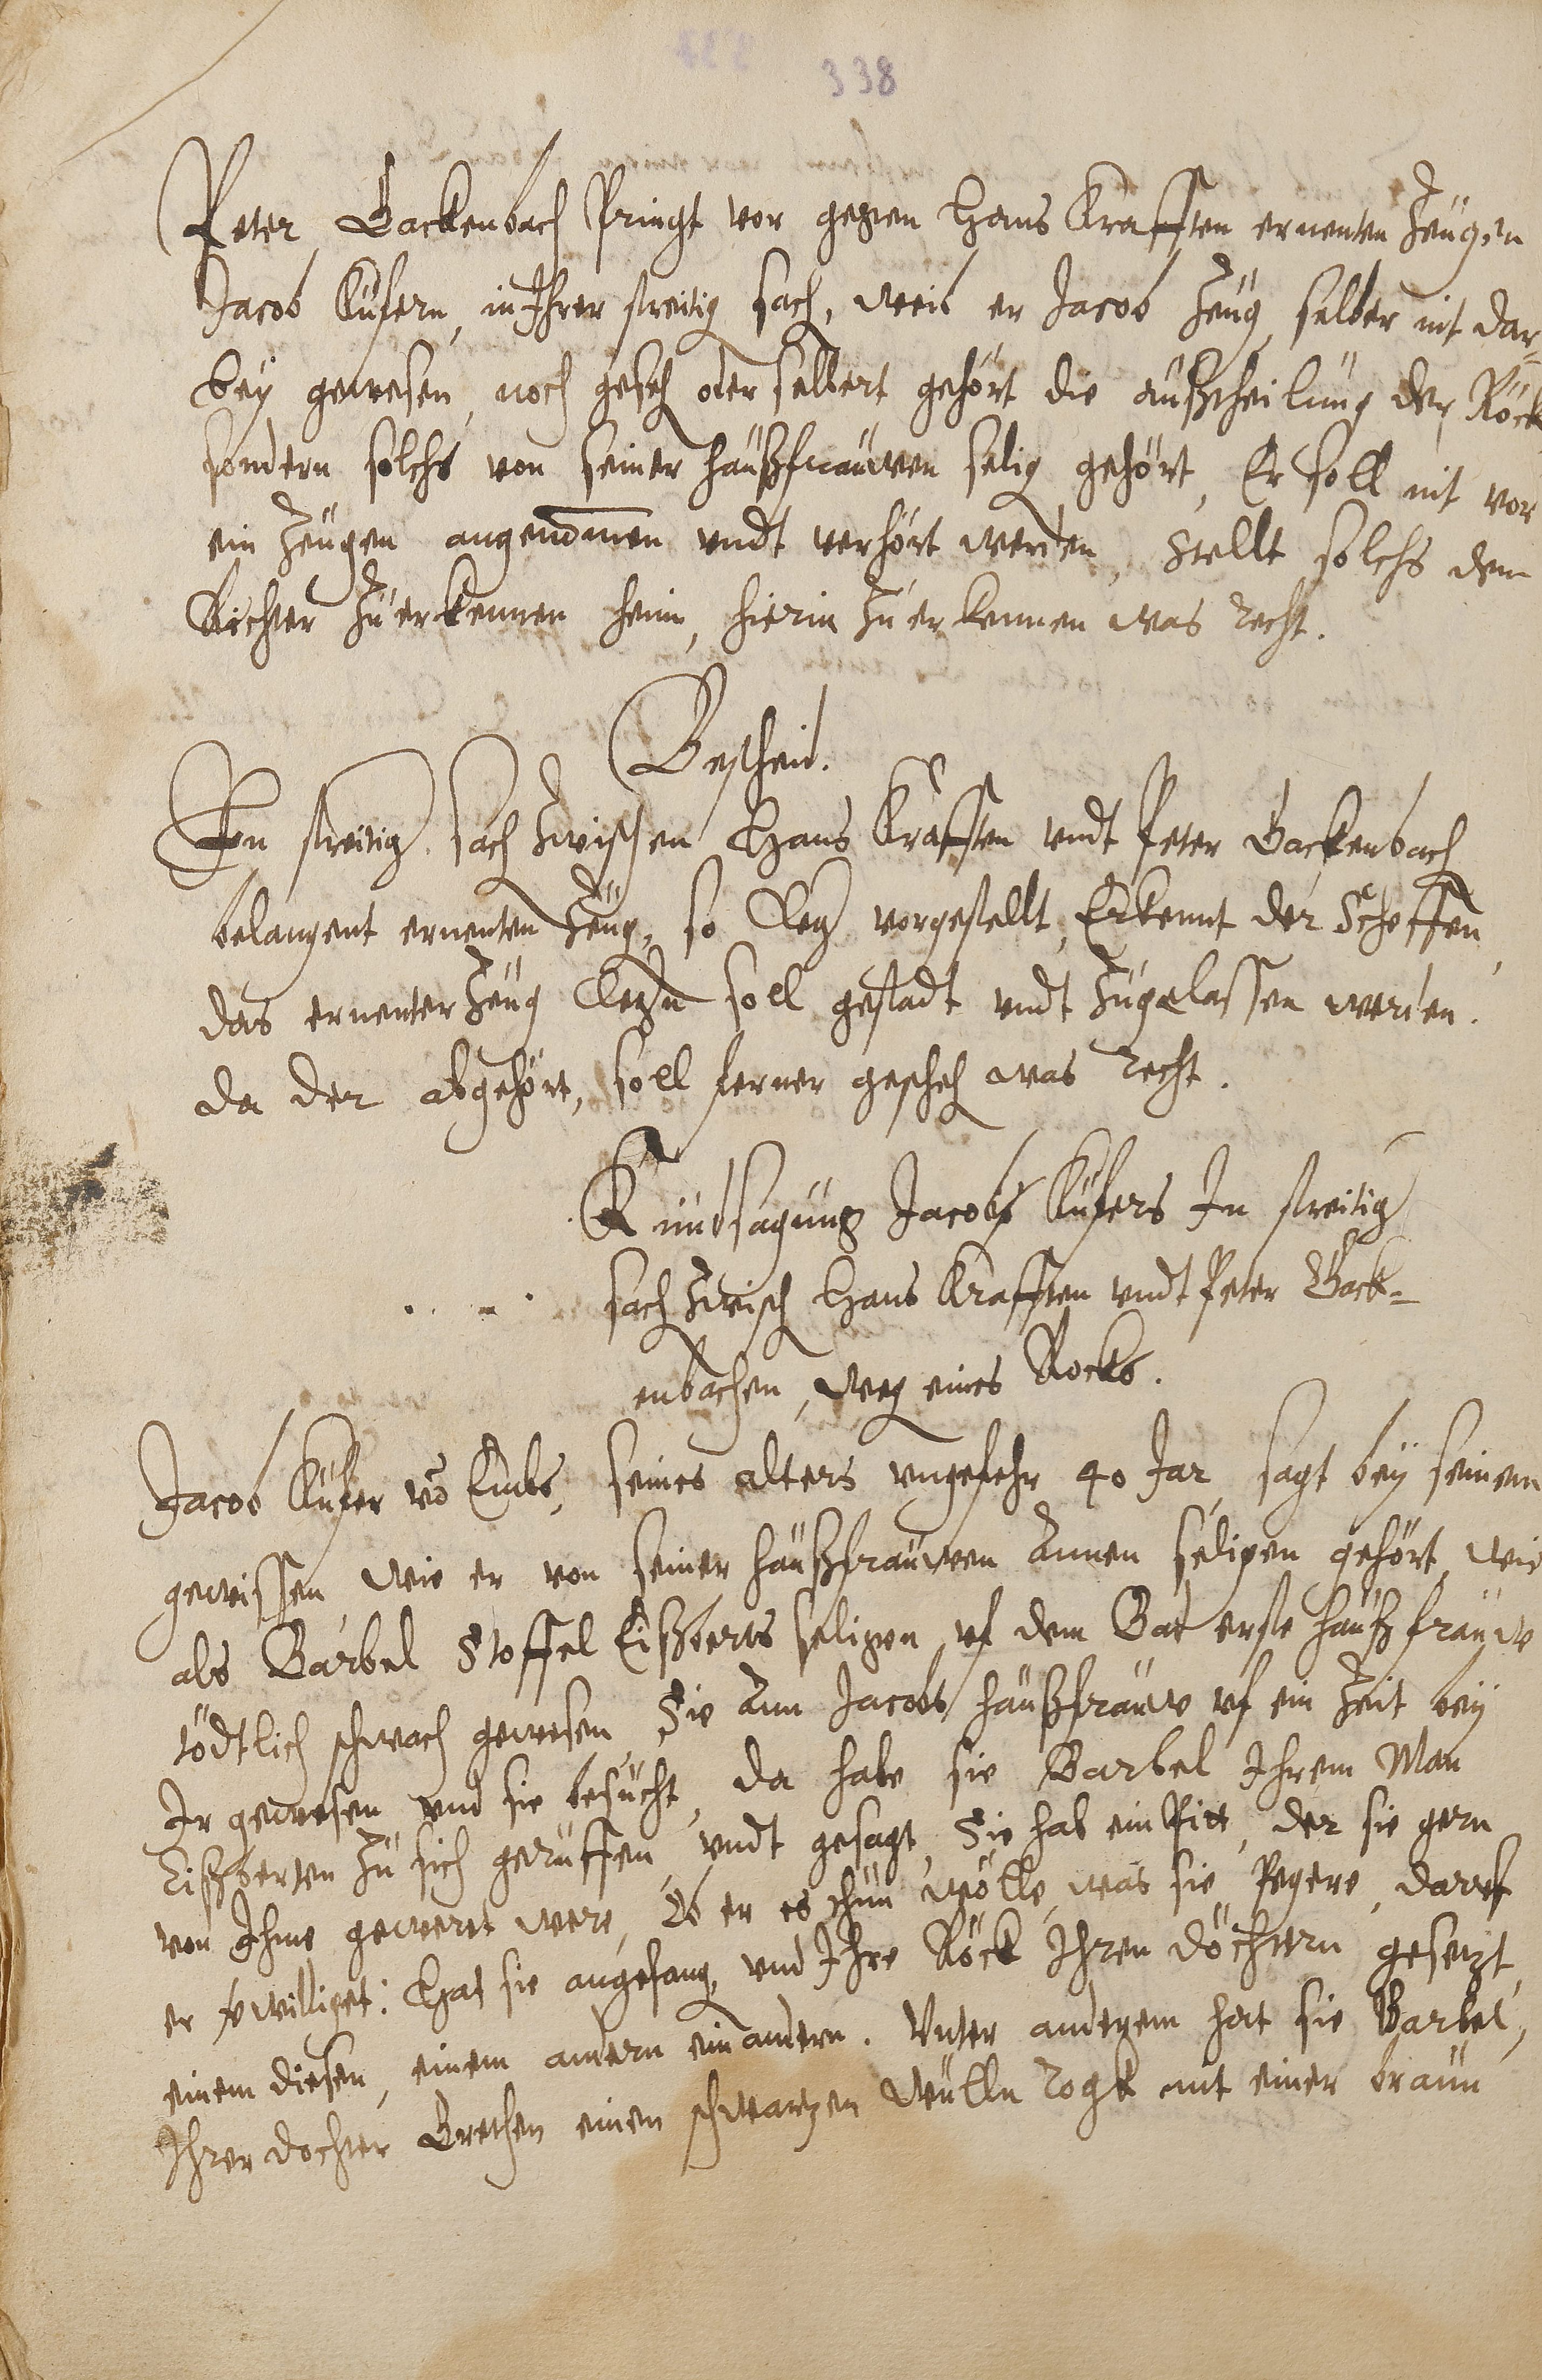 338
Peter Backenbach Pringt vor gegen Hans Krafften ernenten Zeugen
Jacob Küfern, in Ihrer streitig sach, weil er Jacob Zeug, selber nit dar-
bey gewesen, noch geseh oder selbert gehört die außtheilung der Röck
sondern solchs von seiner haußfrauwen selig gehört, Er soll nit vor
ein Zeugen angenommen undt verhört werden, stellt solchs dem
Richter zu erkennen heim, hierin zu erkennen was recht.
Bescheid.
In streitig sach zwischen Hans Krafften undt Peter Backenbach
belangent ernenten Zeug, so vorgestellt, Erkennt der Scheffen,
das ernenter Zeug soll gestadt undt zugelassen werden.
da der abgehört, soll ferner gescheh was recht.
Kundsagung Jacobs Küfers In streitig
sach zwisch Hans Krafften undt Peter Back-
enbachen, weg eines Rocks.
Jacob Küfer vo Embs, seines alters ungefehr 40 Jar, sagt bey seinem
gewissen, wie er von seiner haußfrauwen Annen seligen gehört, wie
als Barbel Stoffel Lißberts seligen uf dem Bad erste haußfrauw
tödtlich schwach gewesen Sie Ann Jacobs haußfrauw uf ein Zeit bey
Ir gewesen und sie besucht, da habe sie Barbel Ihrem Man
Lißberten zu sich geruffen undt gesagt, Sie hab ein Pitt, der sie gern
von Ihme gewert were, Ob er es thun wölle, was sie Pegere, daruf
er bewilliget: Hat sie angefang, und Ihre Röck Ihren döchtern gesetzt,
einem diesen, einem andern ein andern. Unter anderem hat sie Barbel,
Ihrer dochter Grethen einen schwartzen wullen rogk mit einer braun